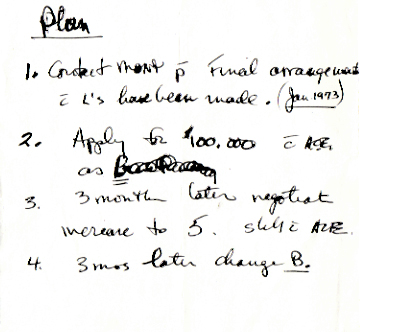 Plan
1. Contact Mont p̄ Final arrangement
c̄ L's have been made. (Jan 1973)
2. Apply for $100,000 c̄
as
3. 3 months later negotiate
increase to 5. still c̄
4. 3 mos later change B.